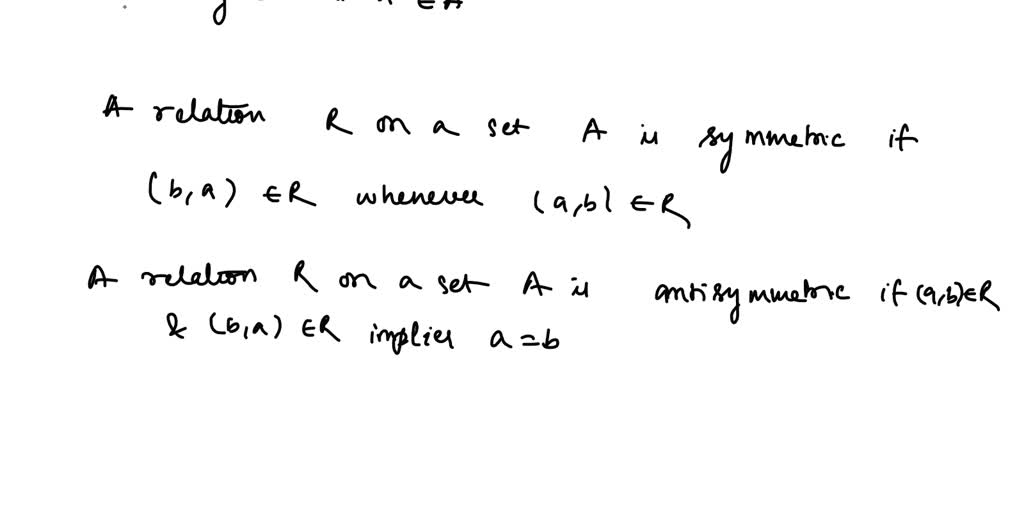 ∈A
A relation R on a set A is symmetric if
(b,a) ∈R whenever (a,b) ∈R
A relation R on a set A is antisymmetric if (a,b)∈R
& (b,a) ∈R implies a=b